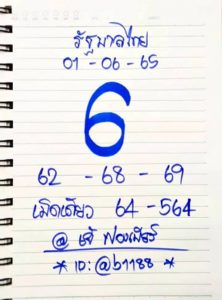 รัฐบาลไทย
01-06-65
6
62 - 68 - 69
เม็ดเดียว 64-564
@ เจ๊ ฟองเบียร์
* ID:@b1188 *